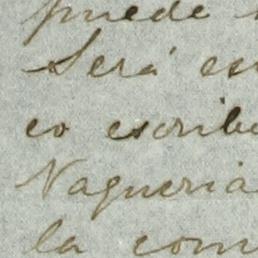 puede
Será
eo escribe
Nagueria
la com